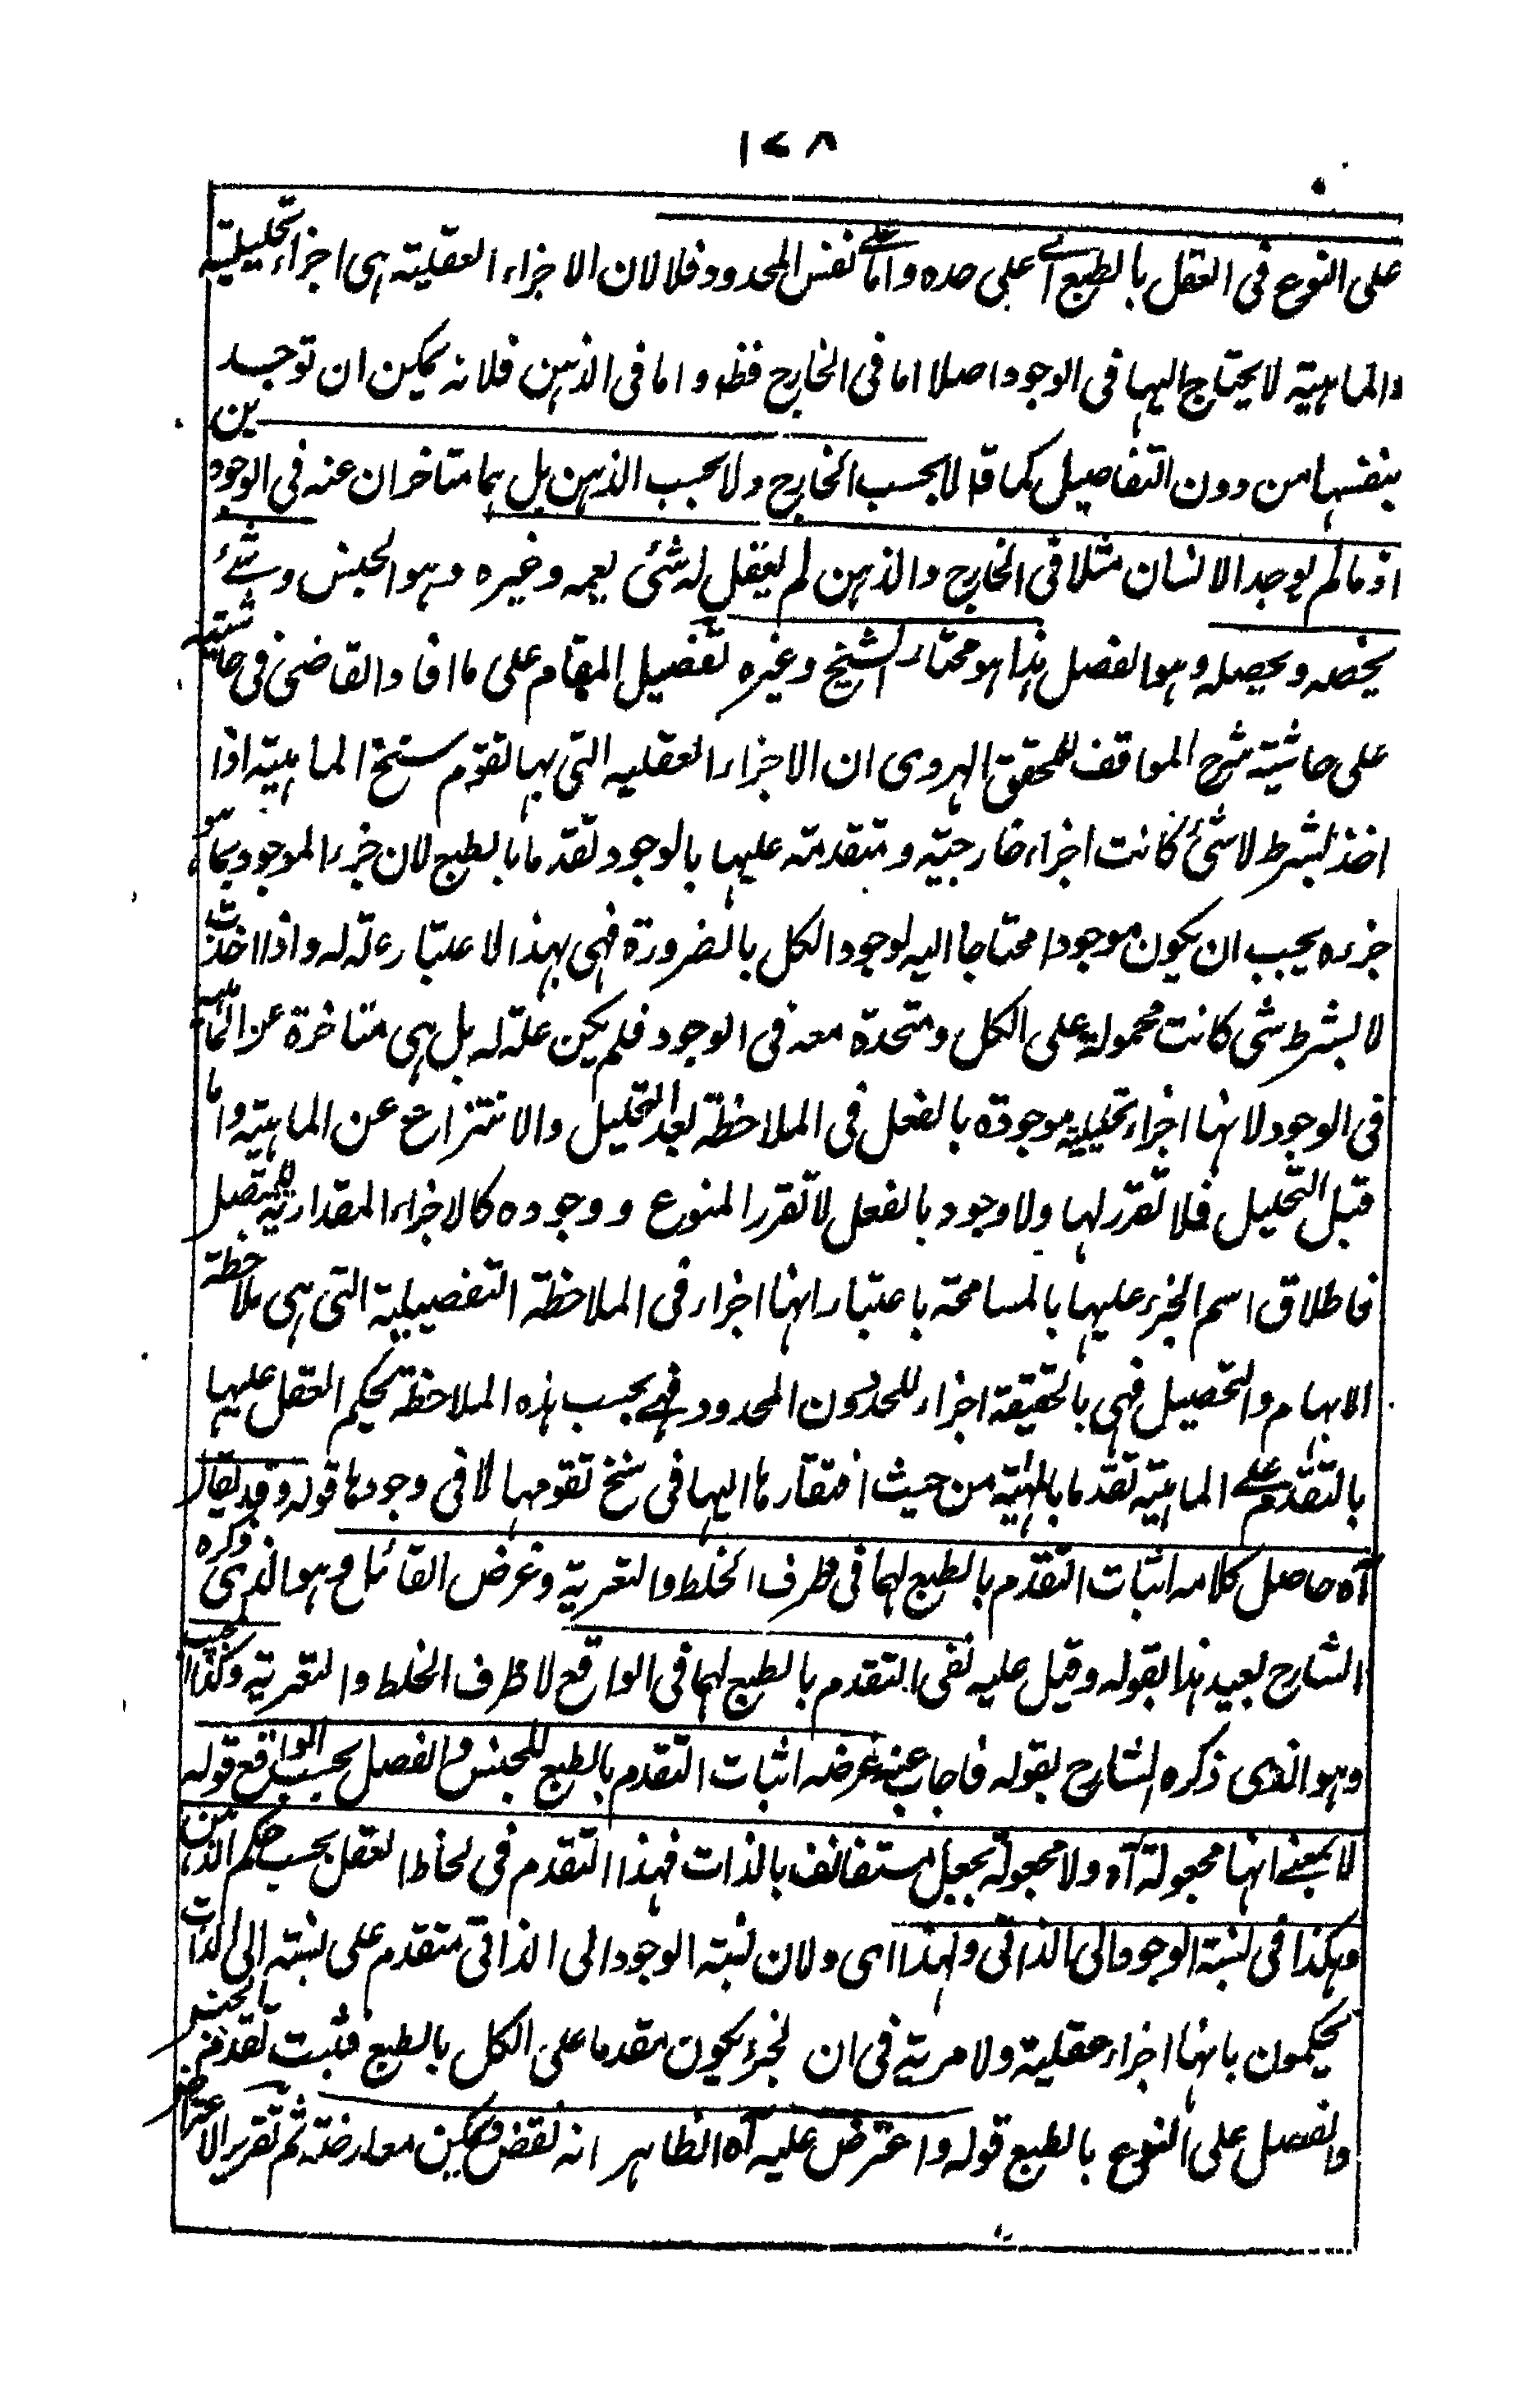 ١٧٨
على النوع فى العقل بالطبع اى على حده واما على نفس المحدود فلا لان الاجزاء العقلية هى اجزاء تحليلية
والماهية لا يحتاج اليها فى الوجود اصلا اما فى الخارج فظ واما فى الذهن فلانه يمكن ان توجد
بنفسها من دون التفاصيل كما قال لا بحسب الخارج ولا بحسب الذهن بل هما متاخران عنه فى الوجودين
اذ ما لم يوجد الانسان مثلا فى الخارج والذهن لم يعقل له شئ يعمه وغيره وهو الجنس وشئ
يخصه ويحصله وهو الفصل هذا هو مختار الشيخ وغيره تفصيل المقام على ما افاد القاضى فى حاشيته
على حاشية شرح المواقف للمحقق الهروى ان الاجزاء العقليه التى بها تقوم سنخ الماهية اذا
اخذ بشرط لا شئ كانت اجزاء خارجية ومتقدمة عليها بالوجود تقدما بالطبع لان جزء الموجود بما هو
جزءه يجب ان يكون موجودا محتاجا اليه لوجود الكل بالضرورة فهى بهذا الاعتبار علة له واذا اخذت
لا بشرط شى كانت محمولة على الكل ومتحدة معه فى الوجود فلم يكن علة له بل هى متاخرة عن الماهية
فى الوجود لانها اجزاء تحليلية موجودة بالفعل فى الملاحظة بعد التحليل والانتزاع عن الماهية واما
قبل التحليل فلا تقرر لها ولا وجود بالفعل لا تقرر المنوع ووجوده كالاجزاء المقدارية للمتصل
فاطلاق اسم الجزء عليها بالمسامحة باعتبار انها اجزاء فى الملاحظة التفصيلية التى هى ملاحظة
الابهام والتحصيل فهى بالحقيقة اجزاء للحد دون المحدود فهى بحسب هذه الملاحظة يحكم العقل عليها
بالتقدم على الماهية تقدما بالماهية من حيث افتقارها اليها فى سنخ تقومها لا فى وجودها قوله وقد يقال
آه حاصل كلامه اثبات التقدم بالطبع لهما فى ظرف الخلط والتعرية وغرض القائل وهو الذى ذكره
الشارح بعيد هذا بقوله وقيل عليه نفى التقدم بالطبع لهما فى الواقع لا ظرف الخلط والتعرية وكذا المجيب
وهو الذى ذكره الشارح بقوله فاجاب عنه غرضه اثبات التقدم بالطبع للجنس والفصل بحسب الواقع قوله
لا بمعنى انها مجعولة آه ولا مجعولة بجعل مستانف بالذات فهذا التقدم فى لحاظ العقل بحسب حكم الذهن
وهكذا فى نسبة الوجود الى الذاتى ولهذا اى ولان نسبة الوجود الى الذاتى متقدم على نسبته الى الذات
يحكمون بانها اجزاء عقلية ولا مرية فى ان الجزء يكون مقدما على الكل بالطبع فثبت تقدم الجنس
والفصل على النوع بالطبع قوله واعترض عليه آه الظاهر انه نقض ويمكن معارضته ثم تقرير الاعتراض